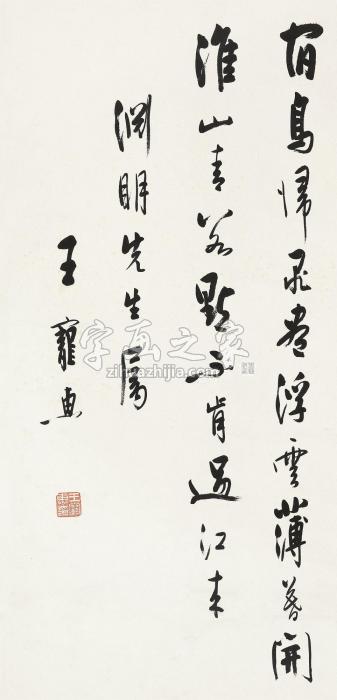 宿鳥歸飛盡浮雲薄暮開
淮山青數點不肯過江來
淵明先生屬
王寵惠
字画之家
zihuazhijia.com